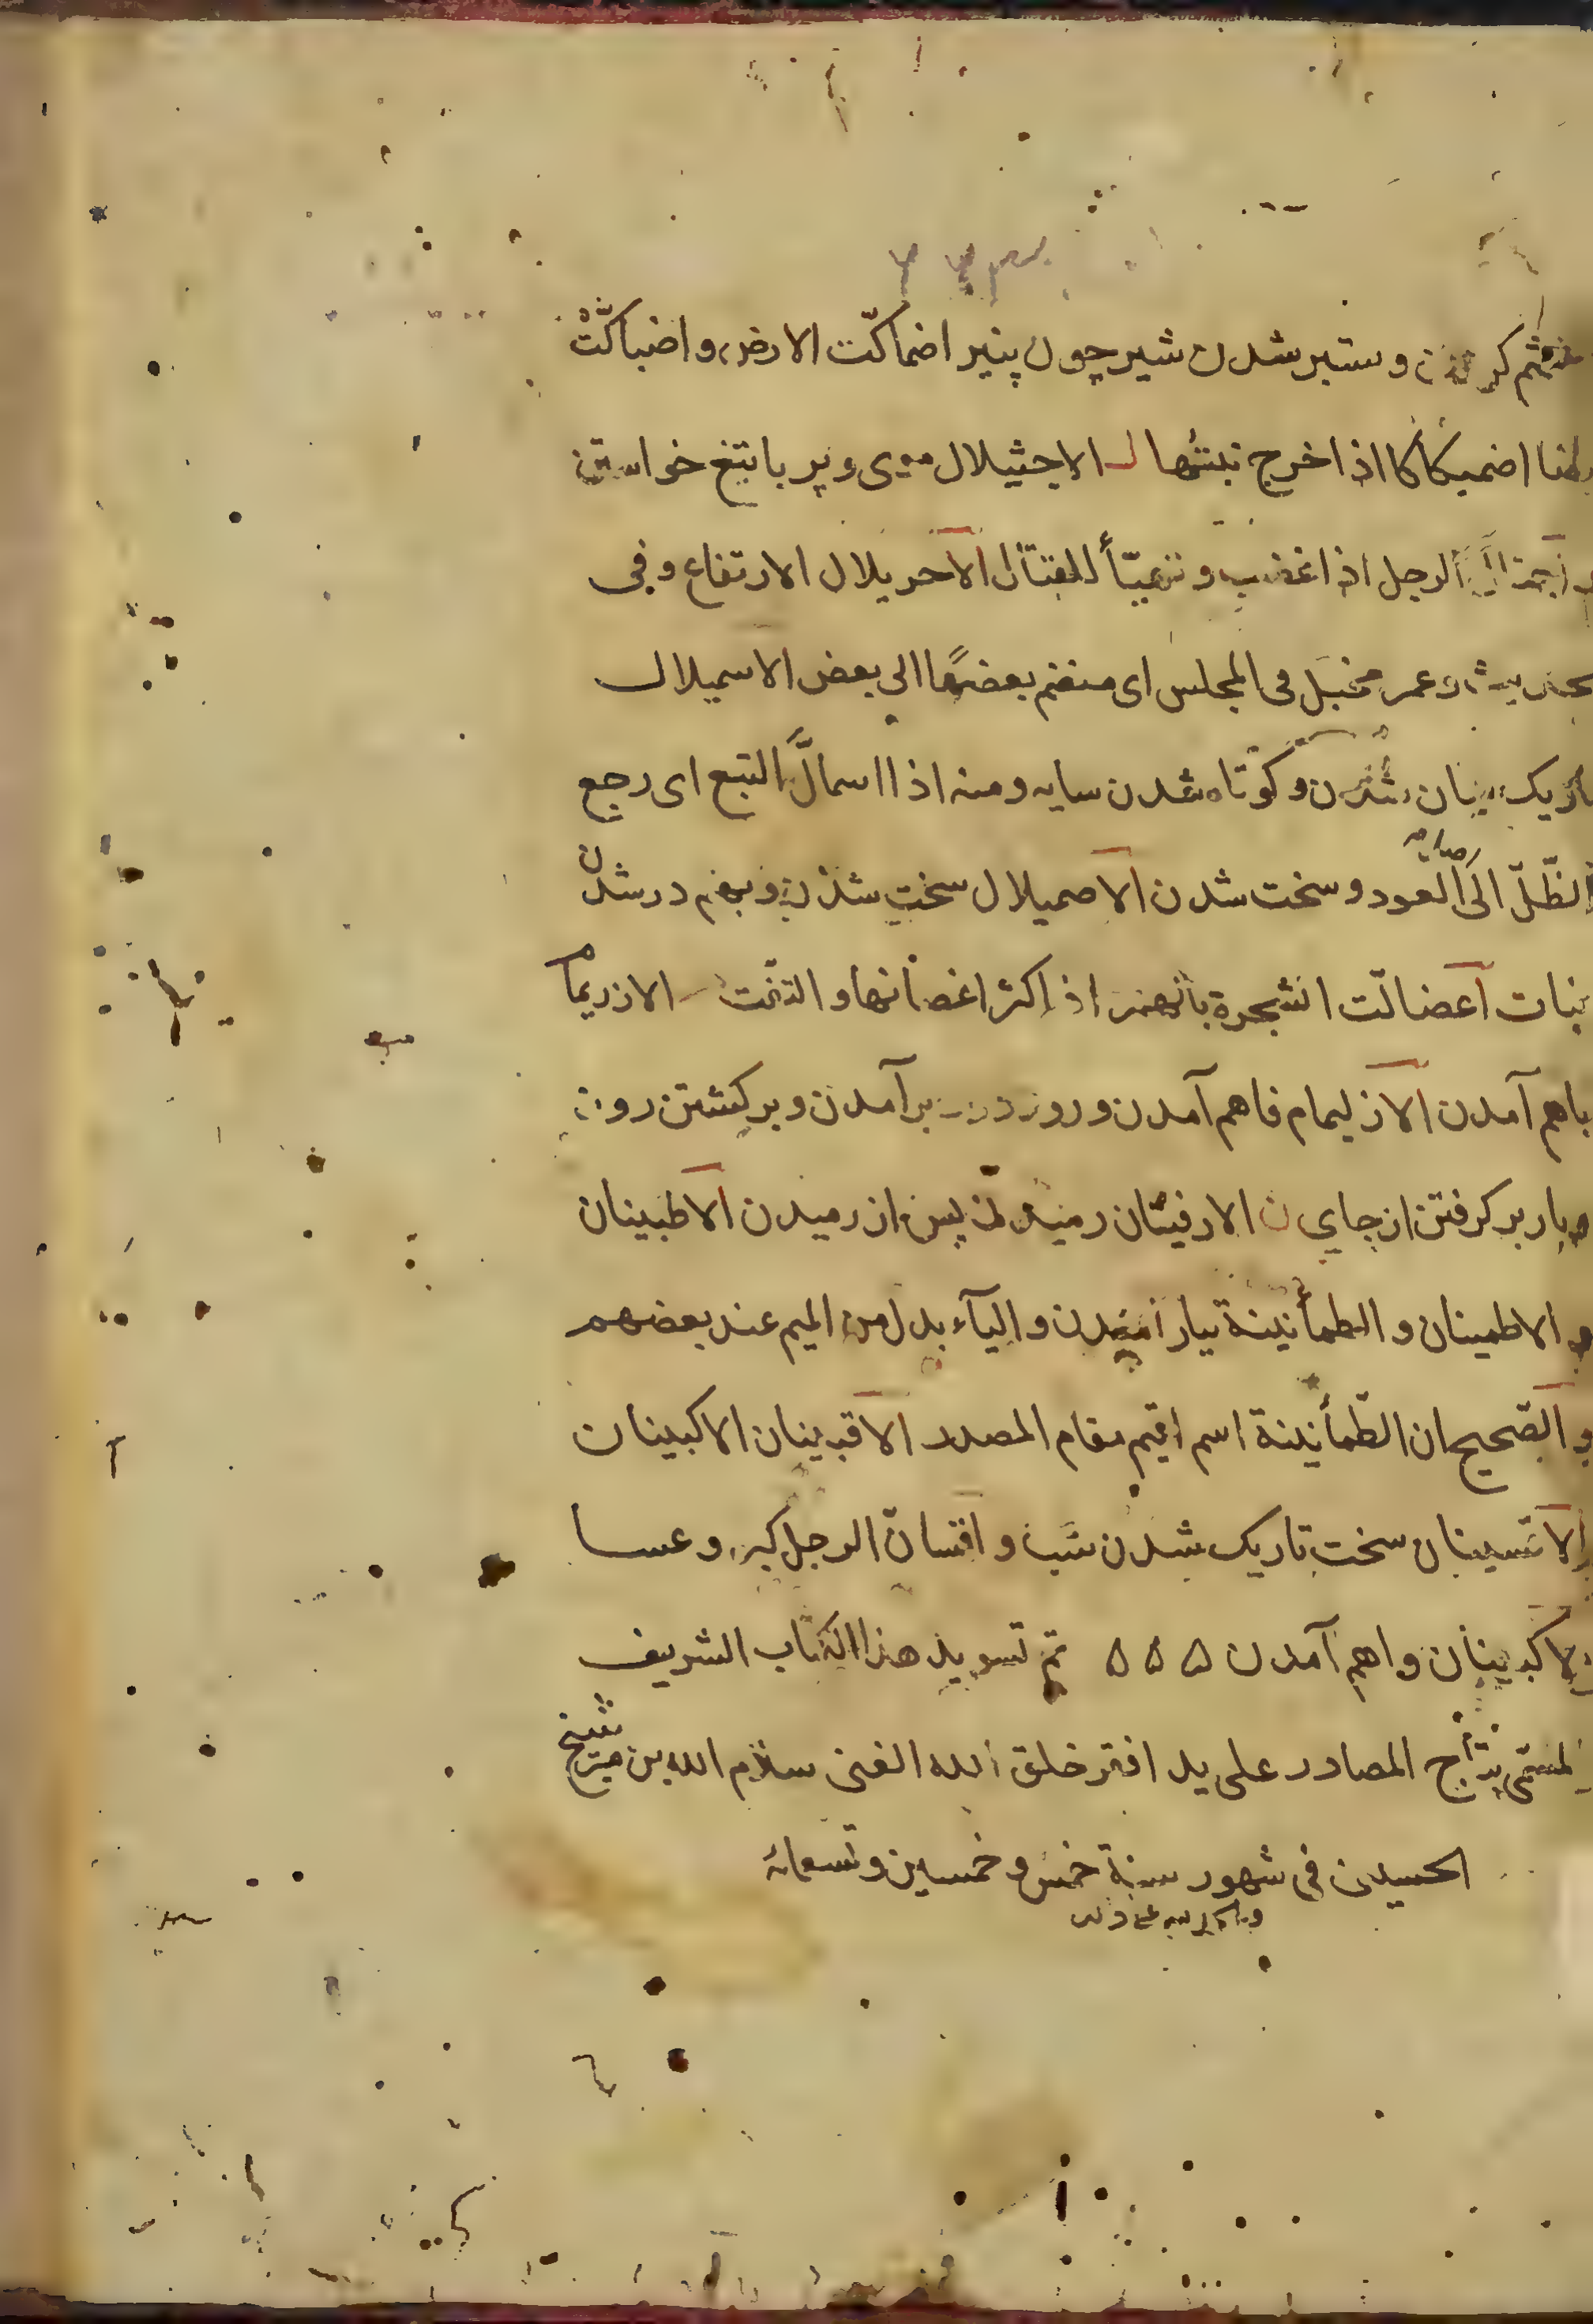 خشم کردن و ستبر شدن شیر چون پنیر اضماکّت الارض و اضباکّت
ایضا اضمیکاکا اذا اخرج نبتها ل الاجثیلال موی و پر با تیغ خواستن
الرجل اذا غضب و تهیّأ للقتال الاحزیلال الارتفاع و فی
حدیث عمر محزئل فی المجلس ای منضم بعضها الی بعض الاسمیلال
باریک میان شدن و کوتاه شدن سایه و منه اذا اسمألّ التبع ای رجع
الظّلّ الی العود و سخت شدن الاصمیلال سخت شدن و بهم در شدن
نبات اعضالّت الشجرة بالهمز اذا کثر اغصانها و التفّت الازریمام
باهم آمدن الازلیمام فاهم آمدن و روز برآمدن و برکشتن روز
و بار برکرفتن از جای ن الارفینان رمیدن پس آرمیدن الاطبینان
و الاطمینان و الطمأنینة بیارامیدن و الباء بدل من المیم عند بعضهم
و الصّحیح ان الطّمأنینة اسم اقیم مقام المصدر الاقبینان الاکبینان
الاقسینان سخت تاریک شدن شب و اقسانّ الرجل کبر و عسا
الاکبینان واهم آمدن ۵ ۵ ۵ تمّ تسوید هذا الکتاب الشریف
المسمّی بتاج المصادر علی ید افقر خلق الله الغنی سلام الله بن شیخ
الحسین فی شهور سنة خمس و خمسین و تسعمائه